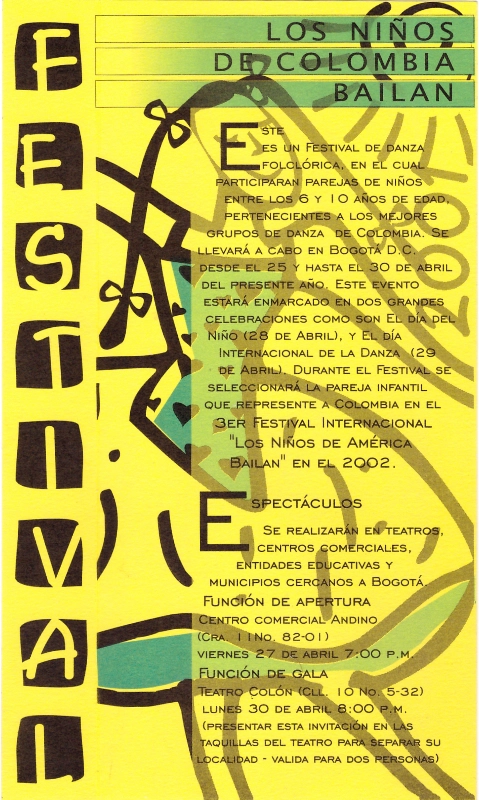 FESTIVAL
LOS NIÑOS
DE COLOMBIA
BAILAN
2001
ESTE
ES UN FESTIVAL DE DANZA
FOLCLÓRICA, EN EL CUAL
PARTICIPARAN PAREJAS DE NIÑOS
ENTRE LOS 6 Y 10 AÑOS DE EDAD,
PERTENECIENTES A LOS MEJORES
GRUPOS DE DANZA DE COLOMBIA. SE
LLEVARÁ A CABO EN BOGOTÁ D.C.
DESDE EL 25 Y HASTA EL 30 DE ABRIL
DEL PRESENTE AÑO. ESTE EVENTO
ESTARÁ ENMARCADO EN DOS GRANDES
CELEBRACIONES COMO SON EL DÍA DEL
NIÑO (28 DE ABRIL), Y EL DÍA
INTERNACIONAL DE LA DANZA (29
DE ABRIL). DURANTE EL FESTIVAL SE
SELECCIONARÁ LA PAREJA INFANTIL
QUE REPRESENTE A COLOMBIA EN EL
3ER FESTIVAL INTERNACIONAL
"LOS NIÑOS DE AMÉRICA
BAILAN" EN EL 2002.
ESPECTÁCULOS
SE REALIZARÁN EN TEATROS,
CENTROS COMERCIALES,
ENTIDADES EDUCATIVAS Y
MUNICIPIOS CERCANOS A BOGOTÁ.
FUNCIÓN DE APERTURA
CENTRO COMERCIAL ANDINO
(CRA. 11NO. 82-01)
VIERNES 27 DE ABRIL 7:00 P.M.
FUNCIÓN DE GALA
TEATRO COLÓN (CLL. 10 NO. 5-32)
LUNES 30 DE ABRIL 8:00 P.M.
(PRESENTAR ESTA INVITACIÓN EN LAS
TAQUILLAS DEL TEATRO PARA SEPARAR SU
LOCALIDAD - VALIDA PARA DOS PERSONAS)